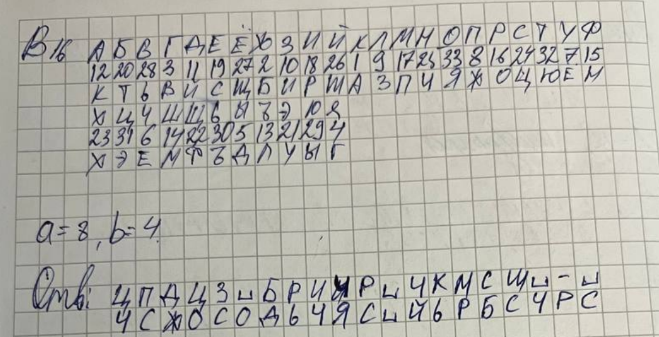 В 16 А Б В Г Д Е Ё Ж З И Й К Л М Н О П Р С Т У Ф
12 20 28 3 11 19 27 2 10 18 26 1 9 17 25 33 8 16 24 32 7 15
К Т Ь В Й С Щ Б И Р Ш А З П Ч Я Ж О Ц Ю Е М
Х Ц Ч Ш Щ Ъ Ы Ь Э Ю Я
23 31 6 14 22 30 5 13 21 29 4
Х Э Е М Ф Ъ Д Л У Ы Г
a = 8, b = 4
Отв: Ц П Д Ц З ⊔ Б Р И Ч Р ⊔ Ч К М С Щ ⊔ - ⊔
Ч С Ж О С О Д Ь Ч Я С ⊔ Й Ь Р Б С Ч Р С